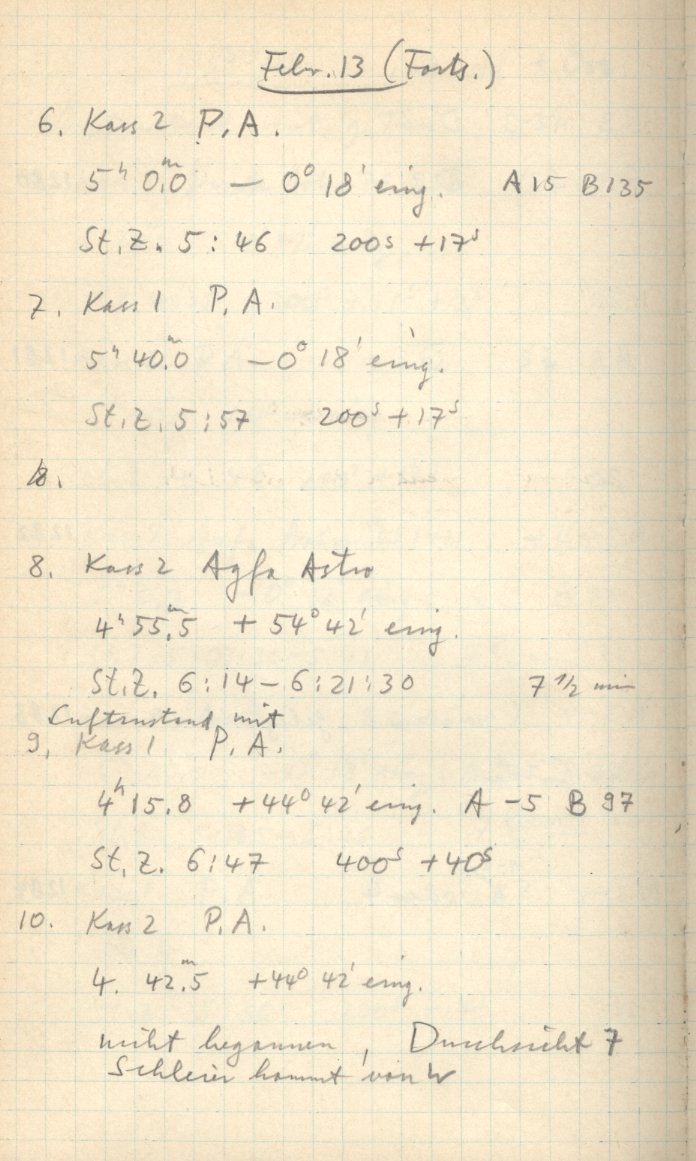 Febr. 13 (Forts.)
6. Kass 2 P.A.
5ʰ 0ᵐ.0 — 0° 18' eing. A 15 B 135
St.Z. 5:46 200s + 17ˢ
7. Kass 1 P.A.
5ʰ 40ᵐ.0 — 0° 18' eing.
St.Z. 5:57 200ˢ + 17ˢ
8.
8. Kass 2 Agfa Astro
4ʰ 55ᵐ.5 + 54° 42' eing.
St.Z. 6:14 – 6:21:30 7 1/2 min
Luftzustand mit
9. Kass 1 P.A.
4ʰ 15.8 + 44° 42' eing. A -5 B 97
St.Z. 6:47 400ˢ + 40ˢ
10. Kass 2 P.A.
4. 42ᵐ.5 + 44° 42' eing.
nicht begonnen, Durchsicht 7
Schleier kommt von W